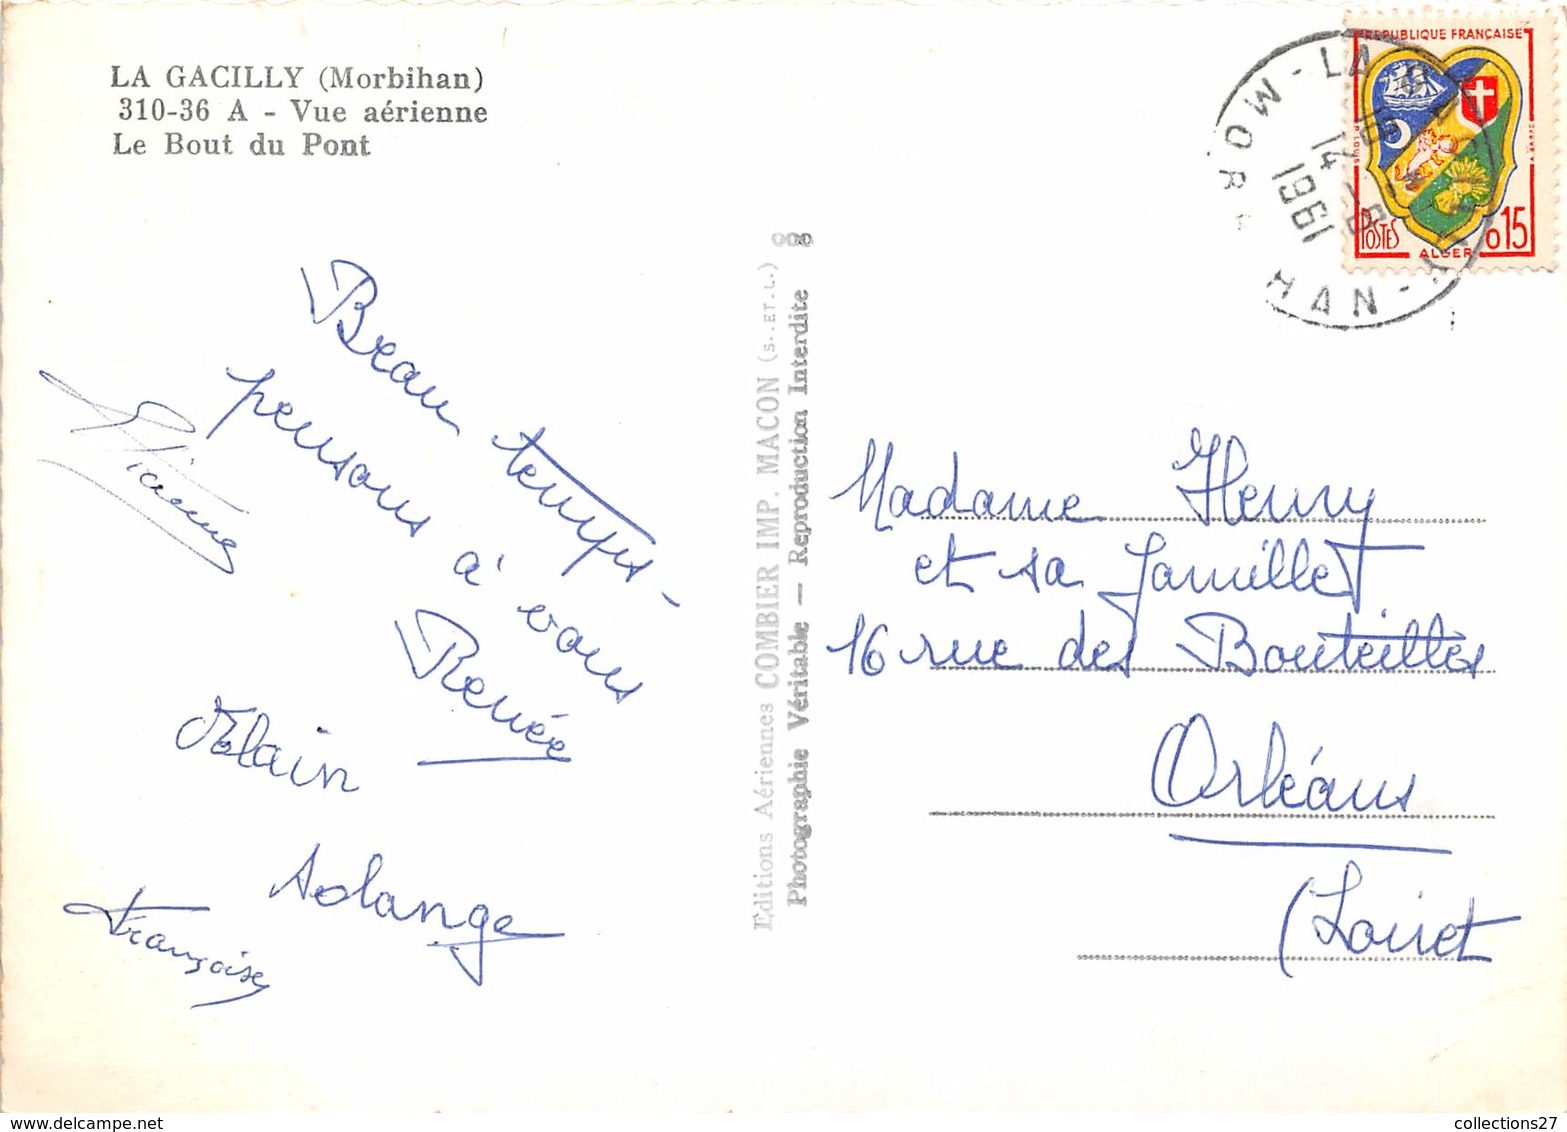 LA GACILLY (Morbihan)
310-36 A - Vue aérienne
Le Bout du Pont
Beau temps -
pensons à vous
Renée
Alain
Solange
Françoise
Editions Aériennes COMBIER IMP. MACON (S.-ET-L.)
Photographie Véritable — Reproduction Interdite
REPUBLIQUE FRANÇAISE
POSTES
0,15
ALGER
14
1961
Madame Henry
et sa famille
16 rue des Bouteilles
Orléans
(Loiret
collections27